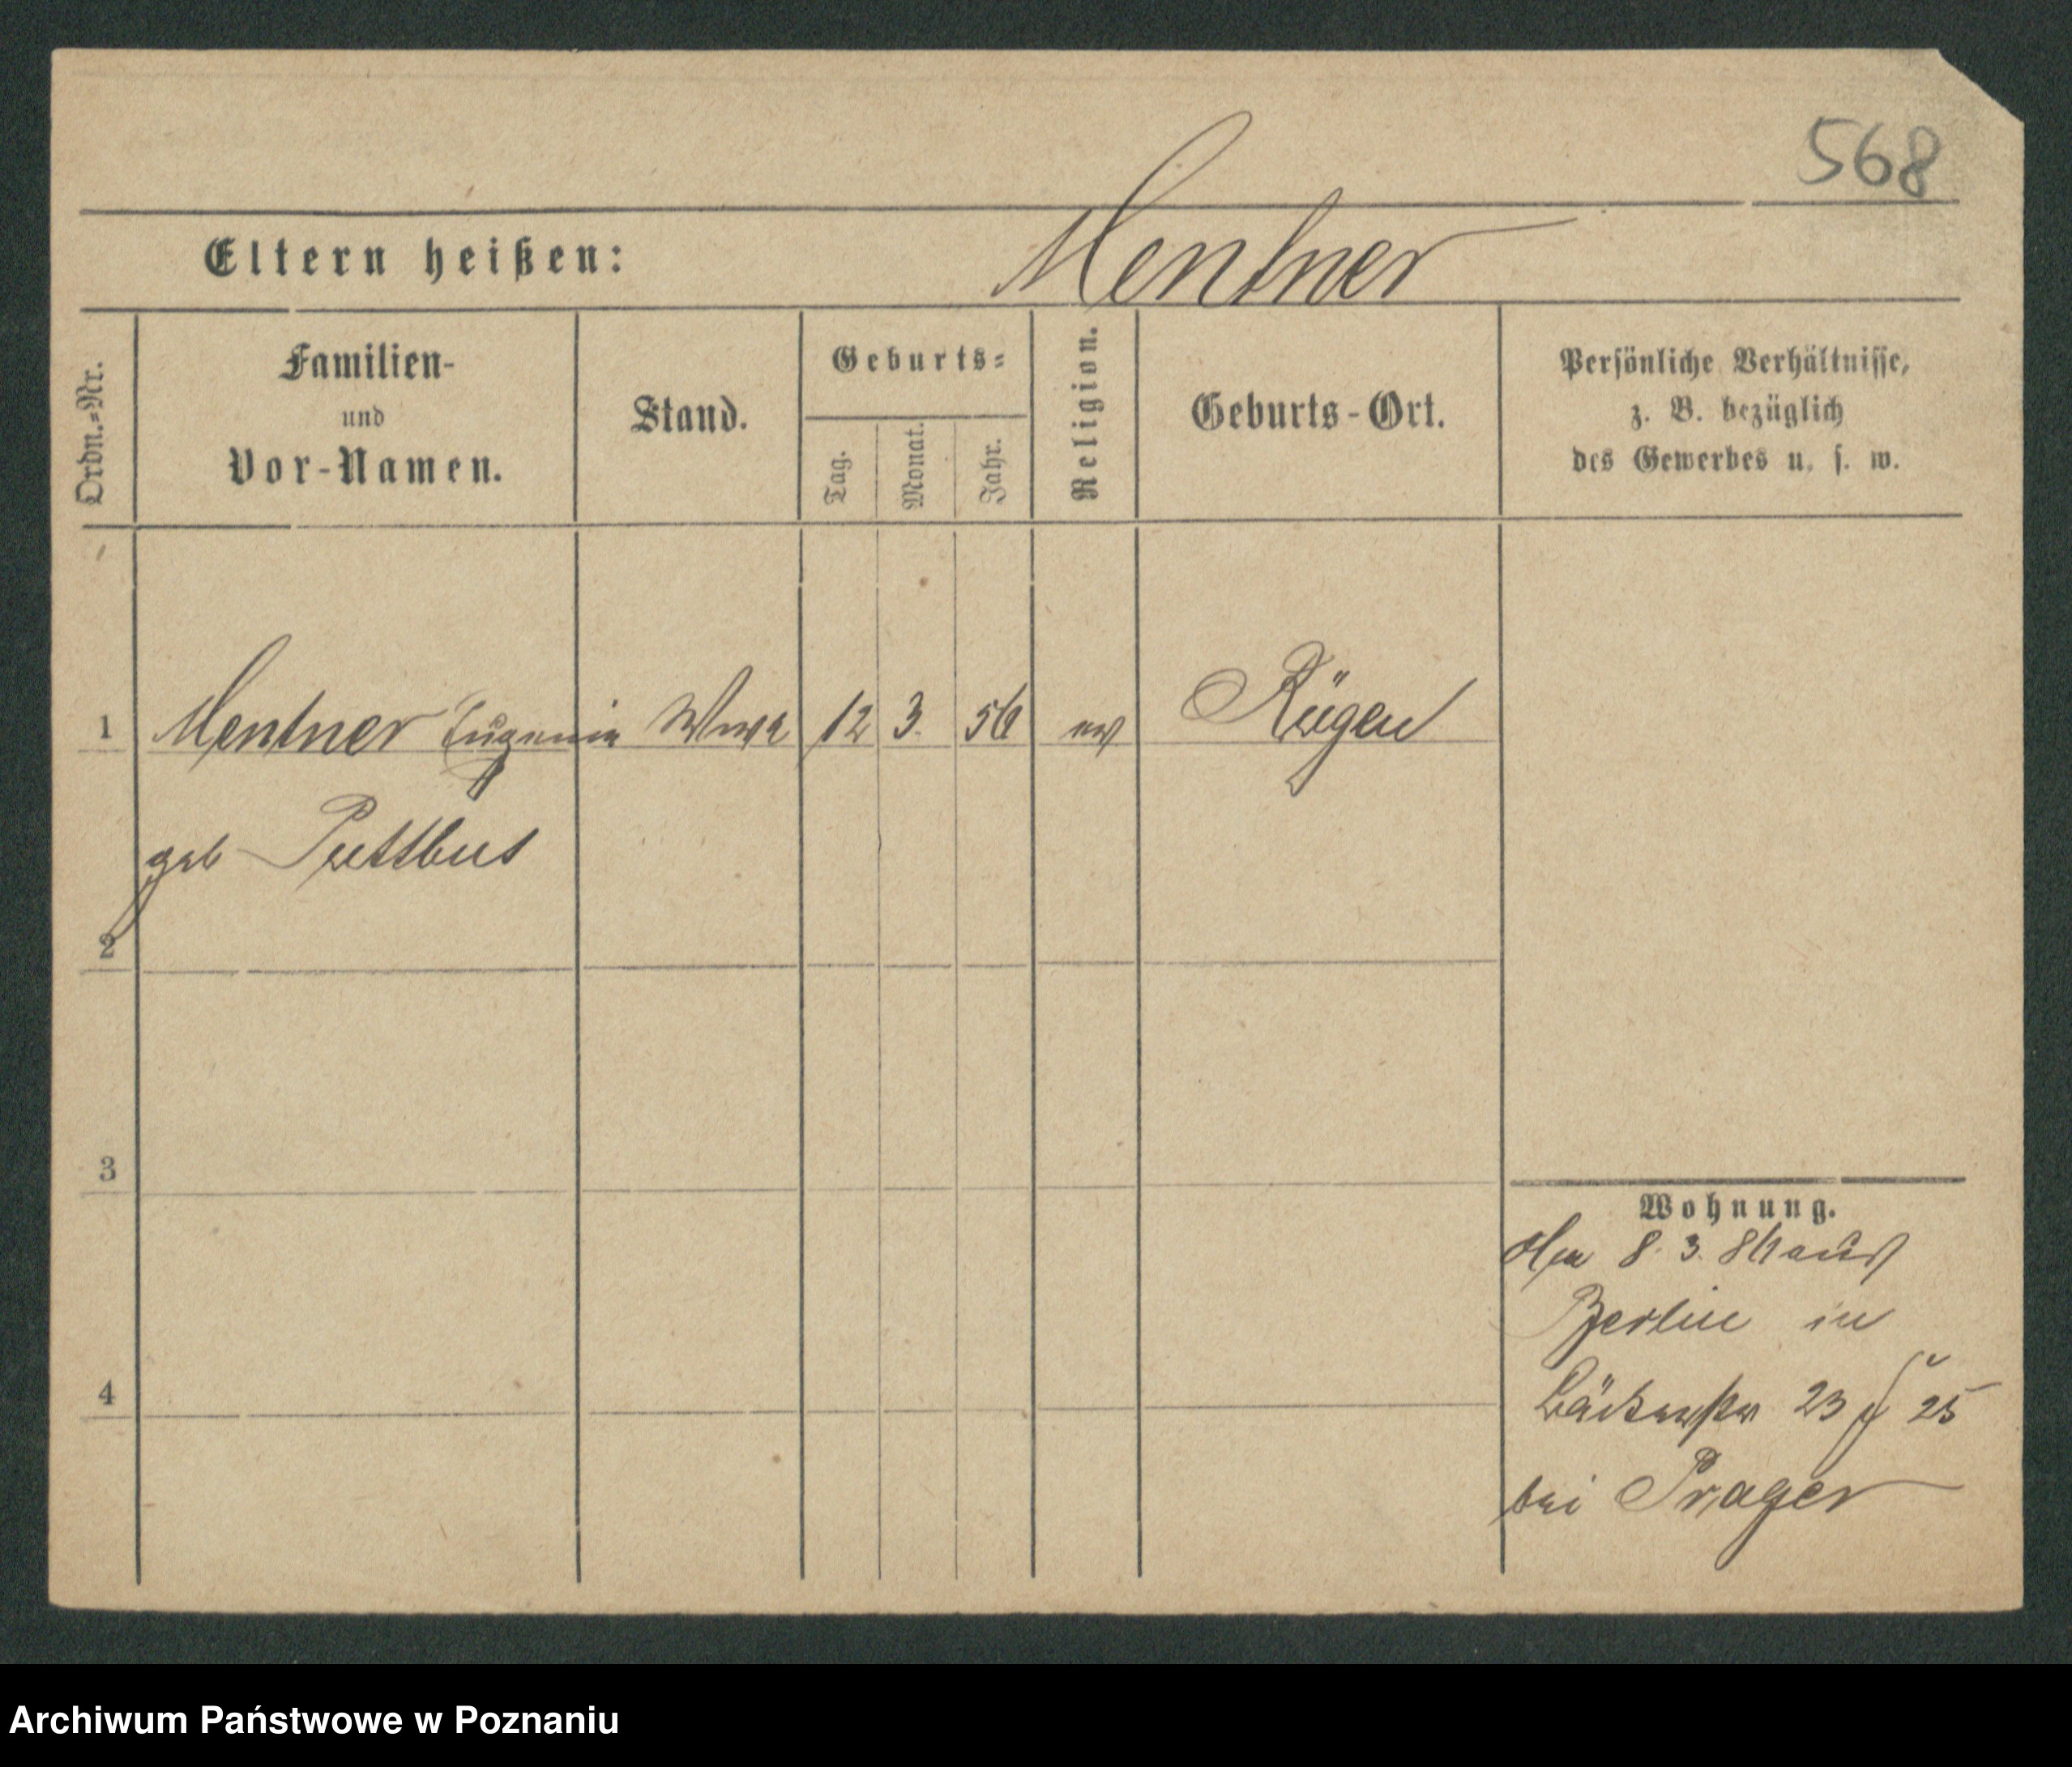 568
Eltern heißen: Mentner
Ordn.-Nr.
Familien-
und
Vor-Namen.
Stand.
Geburts-
Tag. Monat. Jahr.
Religion.
Geburts-Ort.
Persönliche Verhältnisse,
z. B. bezüglich
des Gewerbes u. s. w.
1 Mentner Eugenia Wwe 12 3. 56 ev Rügen
geb Puttbus
2
3
4
Wohnung.
8. 3. 86 aus
Berlin in
Bäckerstr 23 25
bei Prager
Archiwum Państwowe w Poznaniu